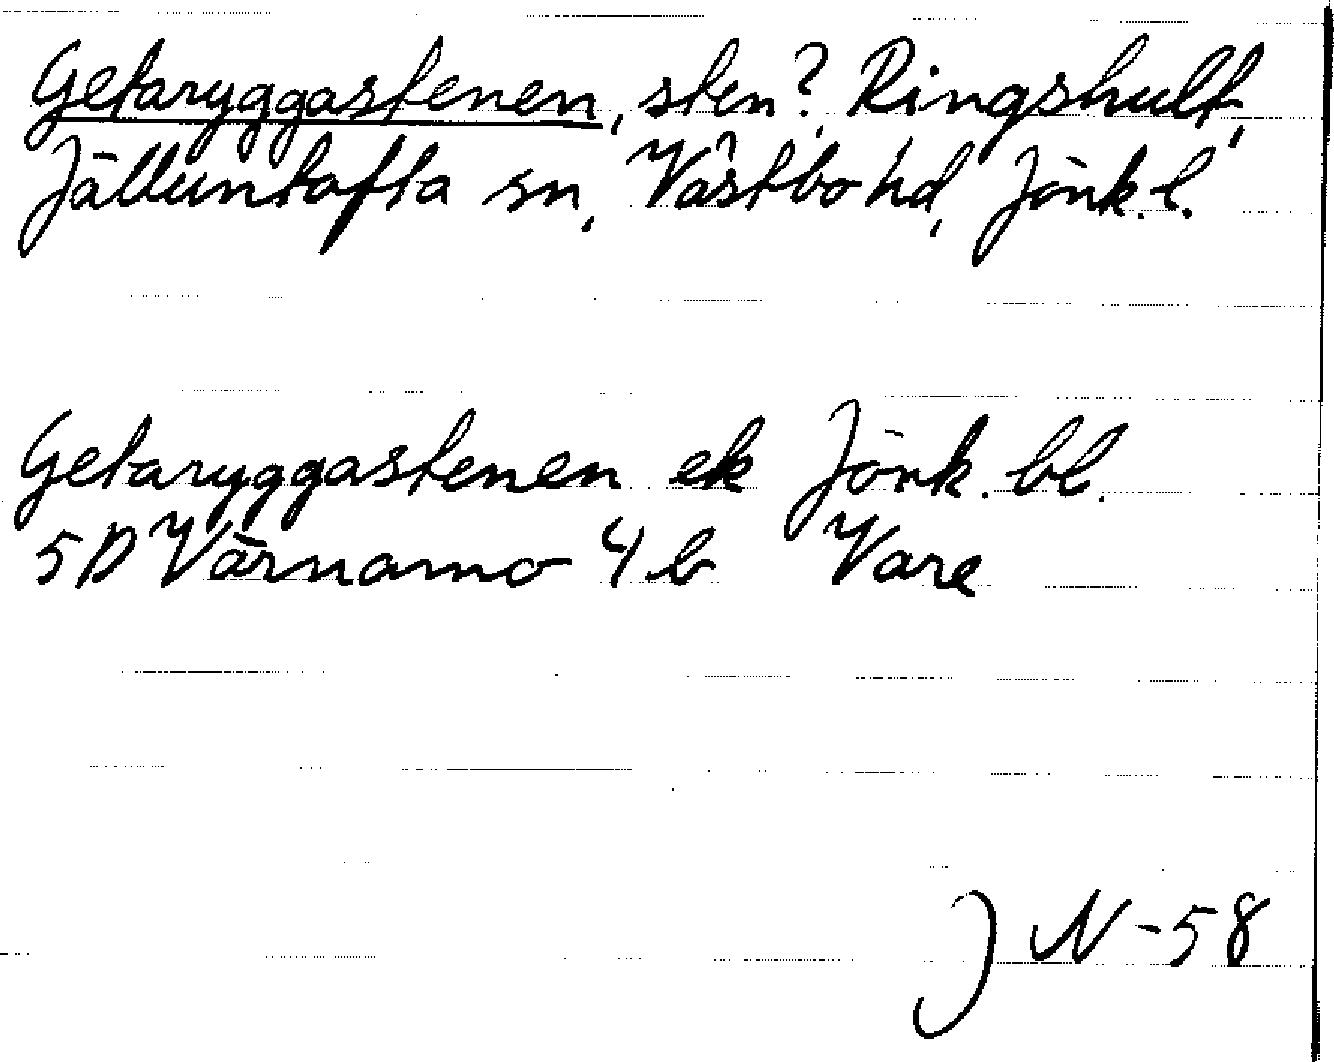 Getaryggastenen, sten? Ringshult,
Jälluntofta sn, Västbo hd, Jönk. l.
Getaryggastenen ek Jönk. bl.
5D Värnamo 4b Vare
J N -58